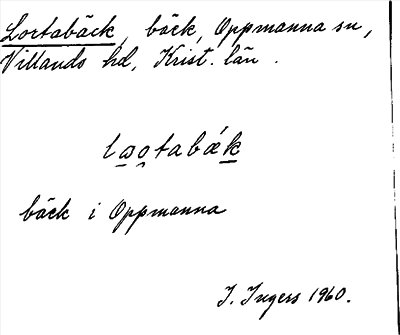 Lortabäck, bäck, Oppmanna sn,
Villands hd, Krist. län.
laotabǽk
bäck i Oppmanna
I. Ingers 1960.